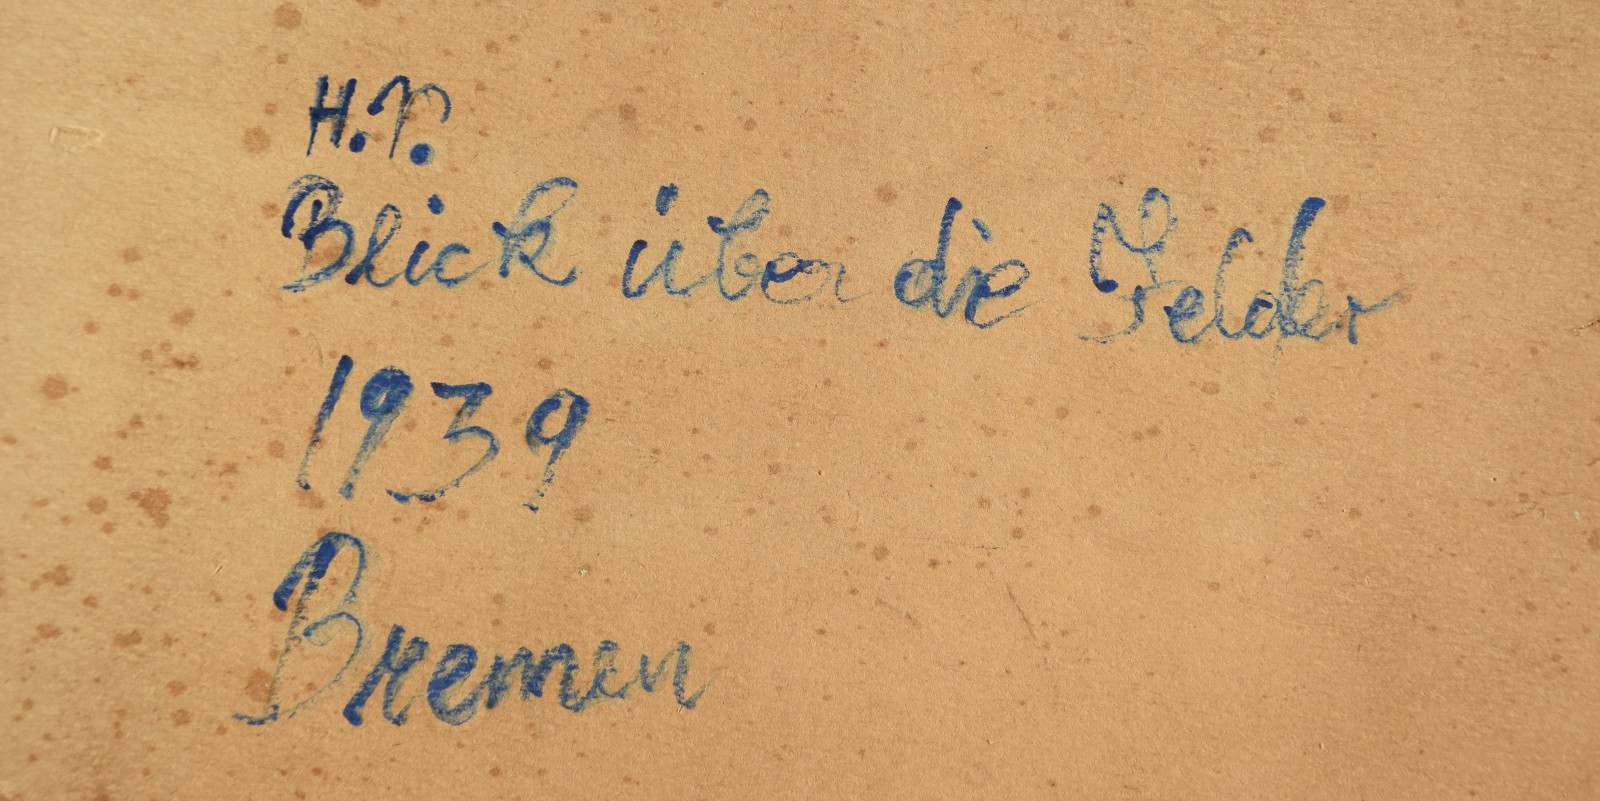 H.P.
Blick über die Felder
1939
Bremen